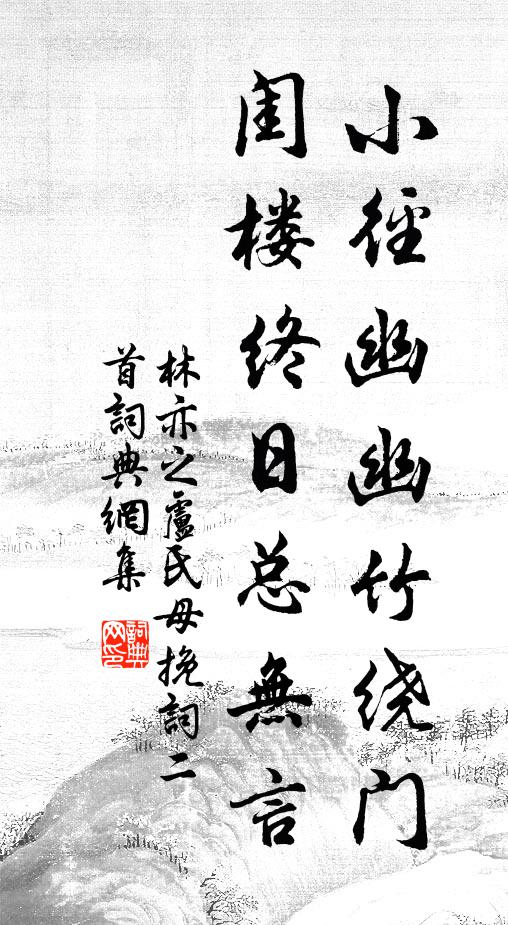 小径幽幽竹绕门
闺楼终日总無言
林亦之盧氏母挽詞二
首詞典網集
詞典
网印